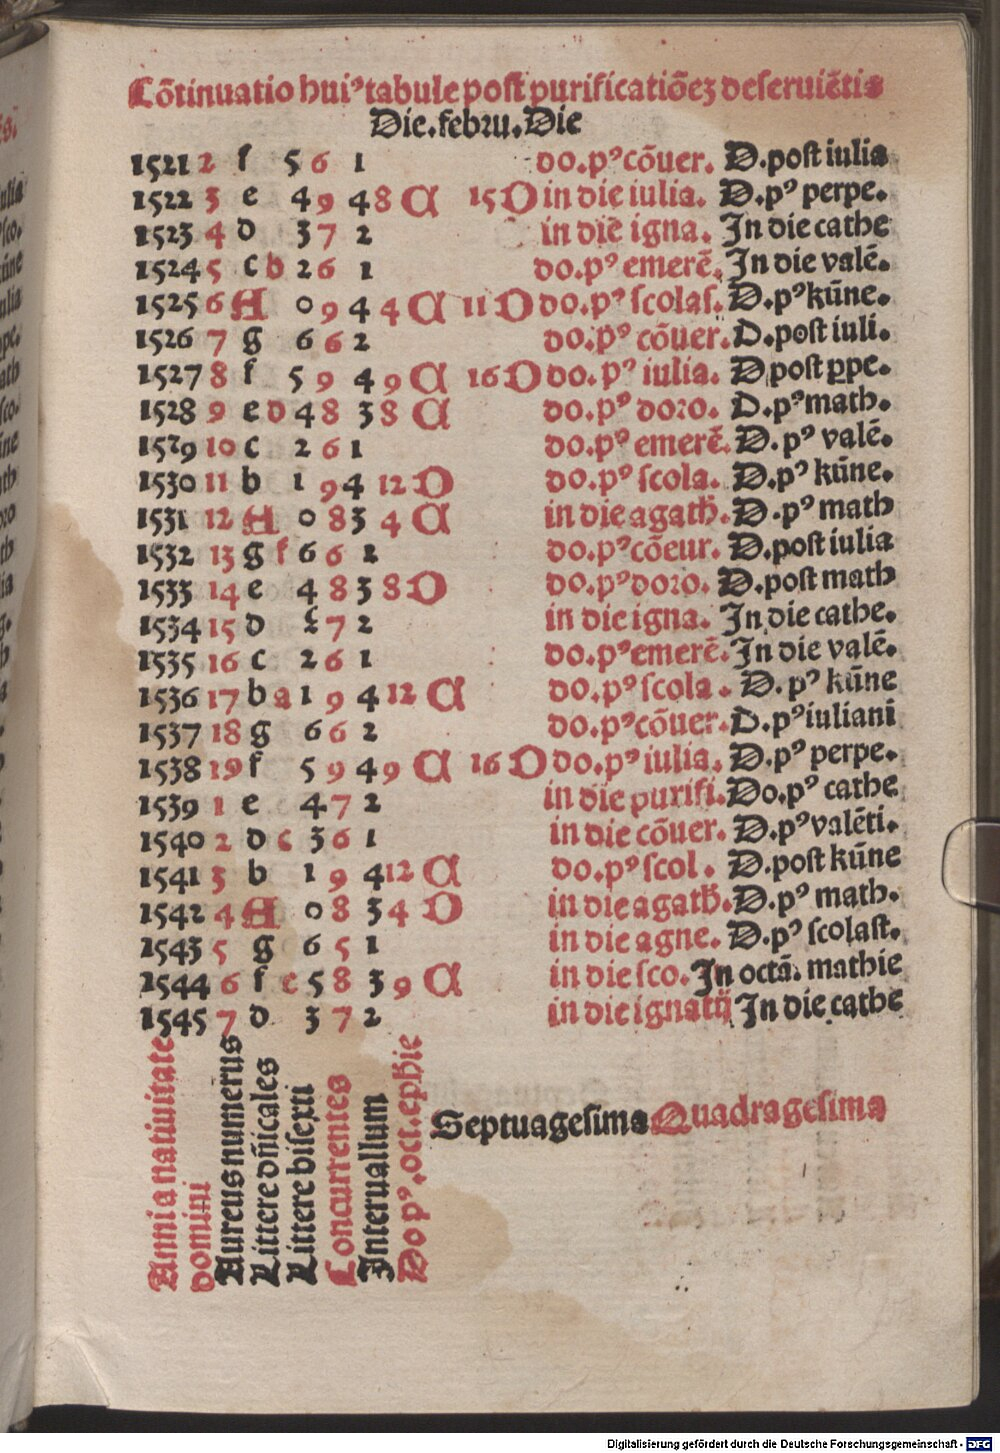 Cōtinuatio huiꝰ tabule post purificatiōez deseruiētis
Die.febru.Die
1521 2 f 5 6 1 do.pꝰ cōuer. D.post iulia
1522 3 e 4 9 4 8 A 15 D in die iulia. D.pꝰ perpe.
1523 4 d 3 7 2 in die igna. In die cathe
1524 5 c b 2 6 1 do.pꝰ emerē. In die valē.
1525 6 A 0 9 4 4 A 11 D do.pꝰ scolas. D.pꝰ kūne.
1526 7 g 6 6 2 do.pꝰ cōuer. D.post iuli.
1527 8 f 5 9 4 9 A 16 D do.pꝰ iulia. D post ꝑpe.
1528 9 e d 4 8 3 8 A do.pꝰ doro. D.pꝰ math.
1529 10 c 2 6 1 do.pꝰ emerē. D.pꝰ valē.
1530 11 b 1 9 4 12 D do.pꝰ scola. D.pꝰ kūne.
1531 12 A 0 8 3 4 A in die agath. D.pꝰ math
1532 13 g f 6 6 2 do.pꝰ cōeur. D.post iulia
1533 14 e 4 8 3 8 D do.pꝰ doro. D.post math
1534 15 d 7 2 in die igna. In die cathe.
1535 16 c 2 6 1 do.pꝰ emerē. In die valē.
1536 17 b a 1 9 4 12 A do.pꝰ scola. D.pꝰ kūne
1537 18 g 6 6 2 do.pꝰ cōuer. D.pꝰ iuliani
1538 19 f 5 9 4 9 A 16 D do.pꝰ iulia. D.pꝰ perpe.
1539 1 e 4 7 2 in die purifi. Do.pꝰ cathe
1540 2 d c 3 6 1 in die cōuer. D.pꝰ valēti.
1541 3 b 1 9 4 12 A do.pꝰ scol. D.post kūne
1542 4 A 0 8 3 4 D in die agath. D.pꝰ math.
1543 5 g 6 5 1 in die agne. D.pꝰ scolast.
1544 6 f e 5 8 3 9 A in die sco. In octā. mathie
1545 7 d 3 7 2 in die ignatij In die cathe
Anni a natiuitate
domini
Aureus numerus
Littere dñicales
Littere bisexti
Concurrentes
Interuallum
Do pꝰ .oct.ephie
Septuagesima Quadragesima
Digitalisierung gefördert durch die Deutsche Forschungsgemeinschaft - DFG